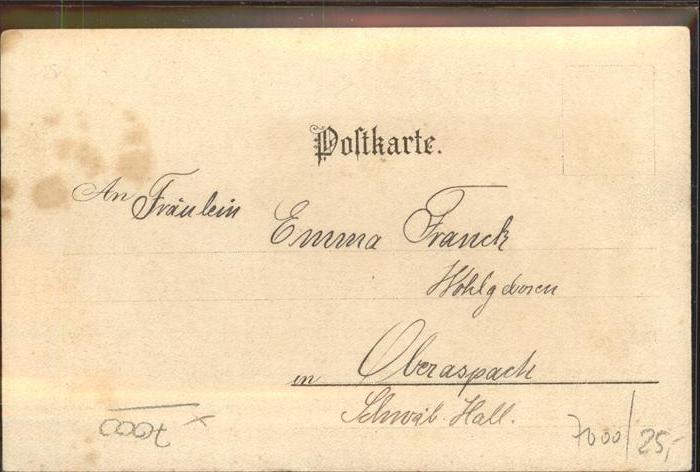 Postkarte.
An Fräulein
Emma Franck
Wohlgeboren
in Oberaspach
Schwäb. Hall.
7000
7000/25,-